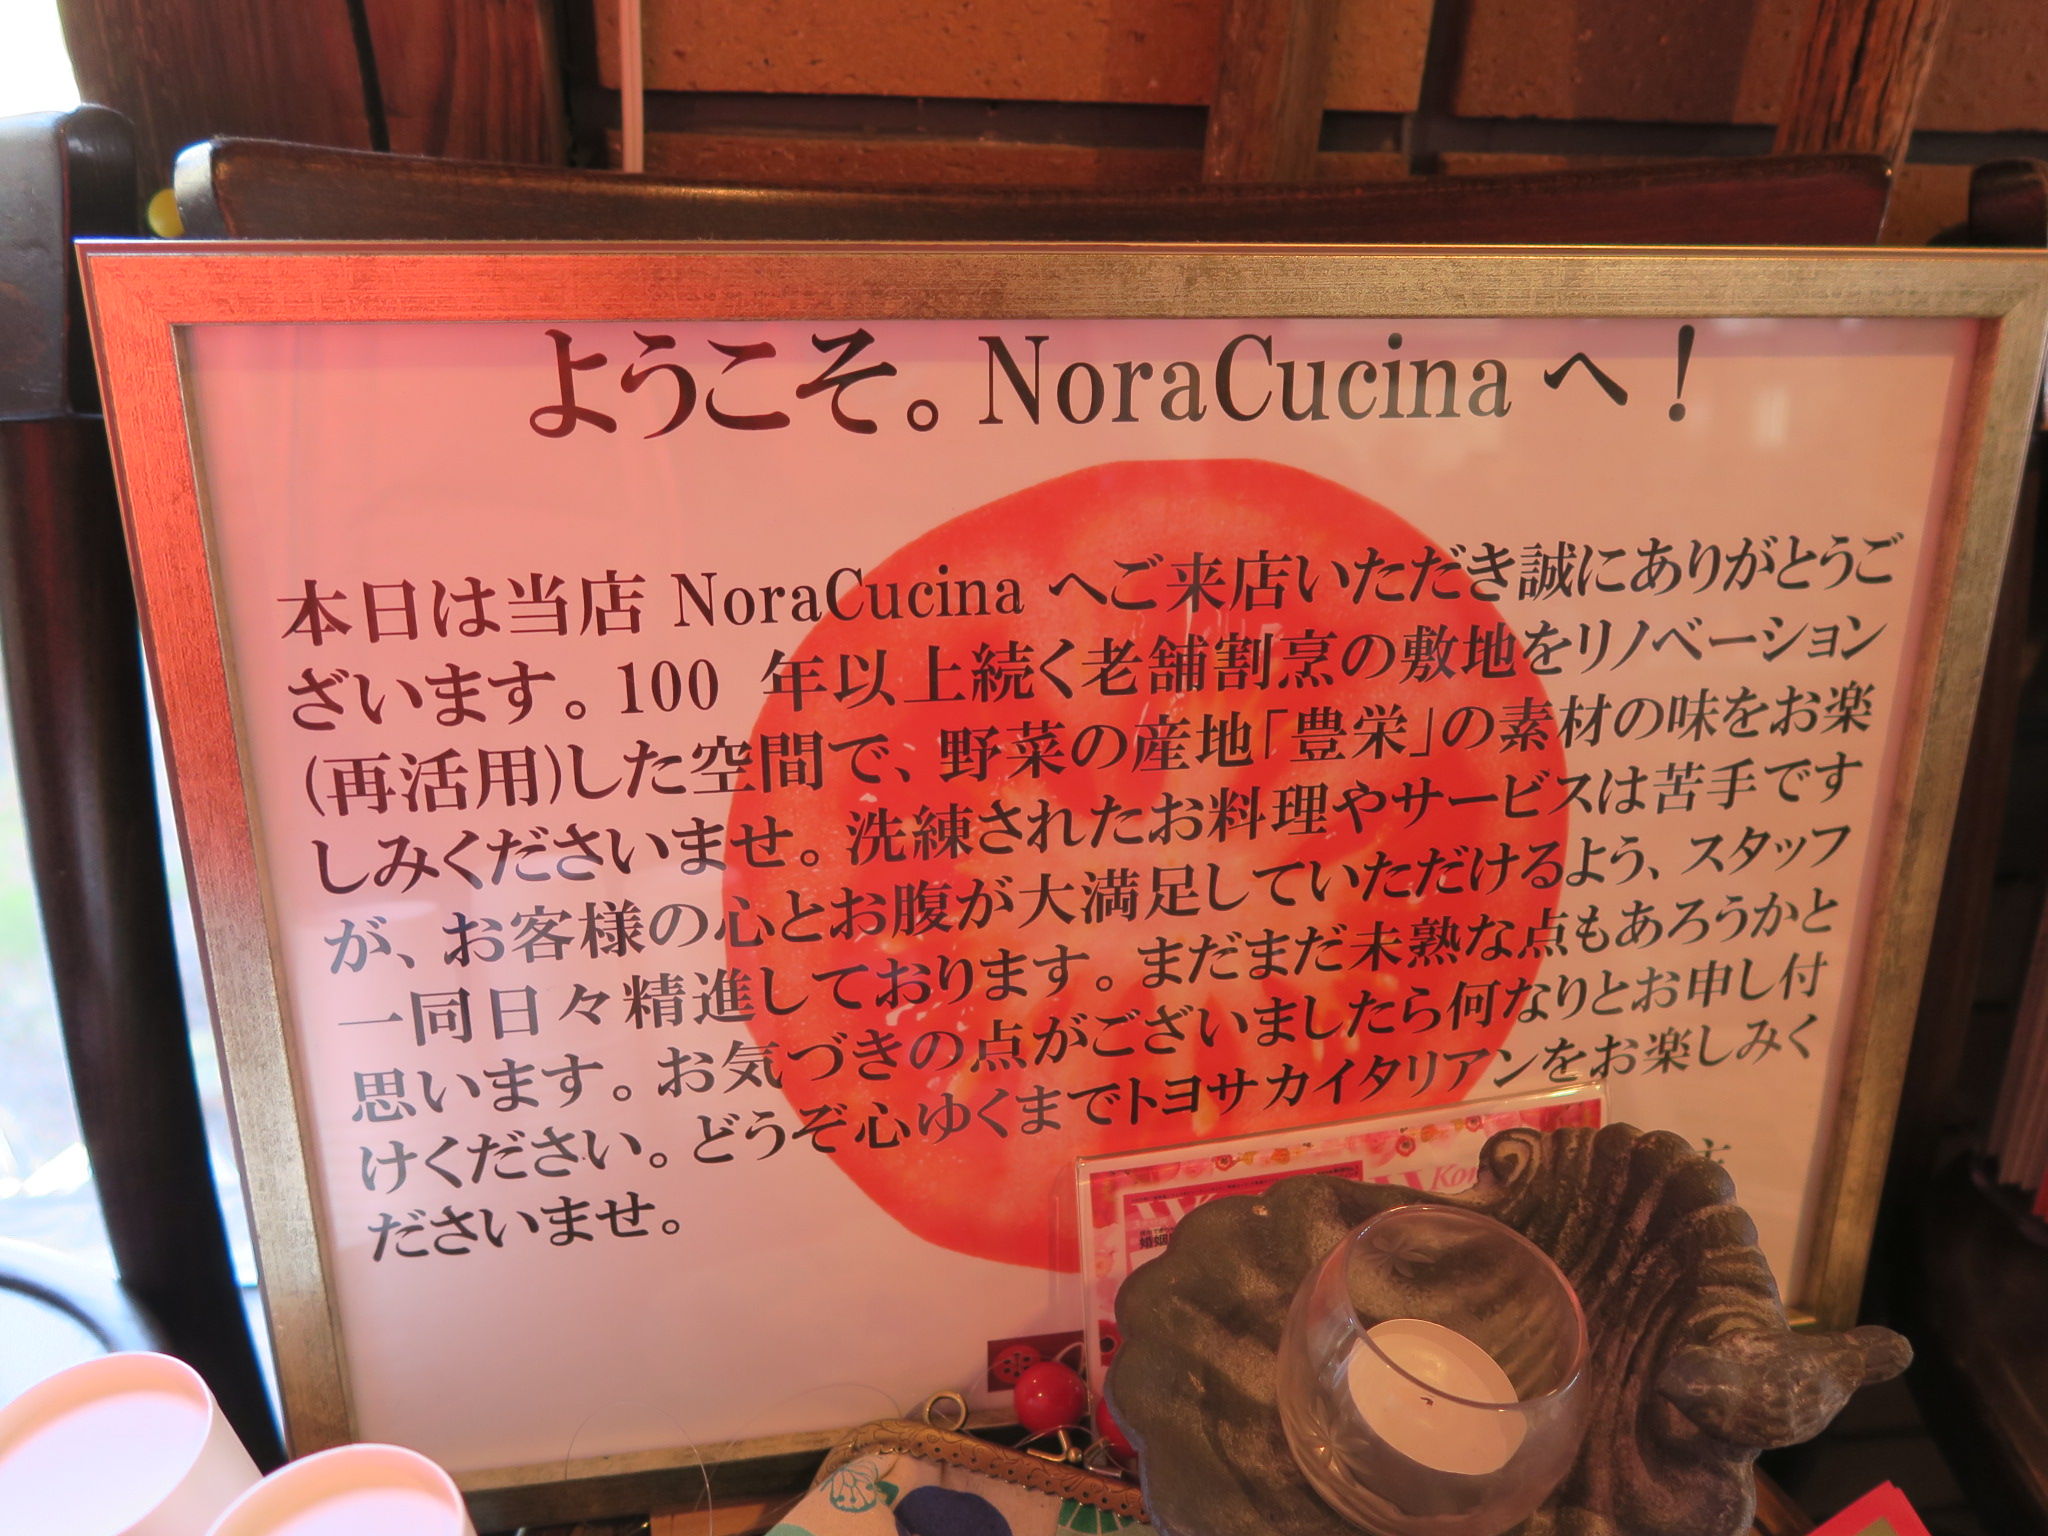 ようこそ。NoraCucina へ！
本日は当店 NoraCucina へご来店いただき誠にありがとうご
ざいます。100 年以上続く老舗割烹の敷地をリノベーション
(再活用)した空間で、野菜の産地「豊栄」の素材の味をお楽
しみくださいませ。洗練されたお料理やサービスは苦手です
が、お客様の心とお腹が大満足していただけるよう、スタッフ
一同日々精進しております。まだまだ未熟な点もあろうかと
思います。お気づきの点がございましたら何なりとお申し付
けください。どうぞ心ゆくまでトヨサカイタリアンをお楽しみく
ださいませ。